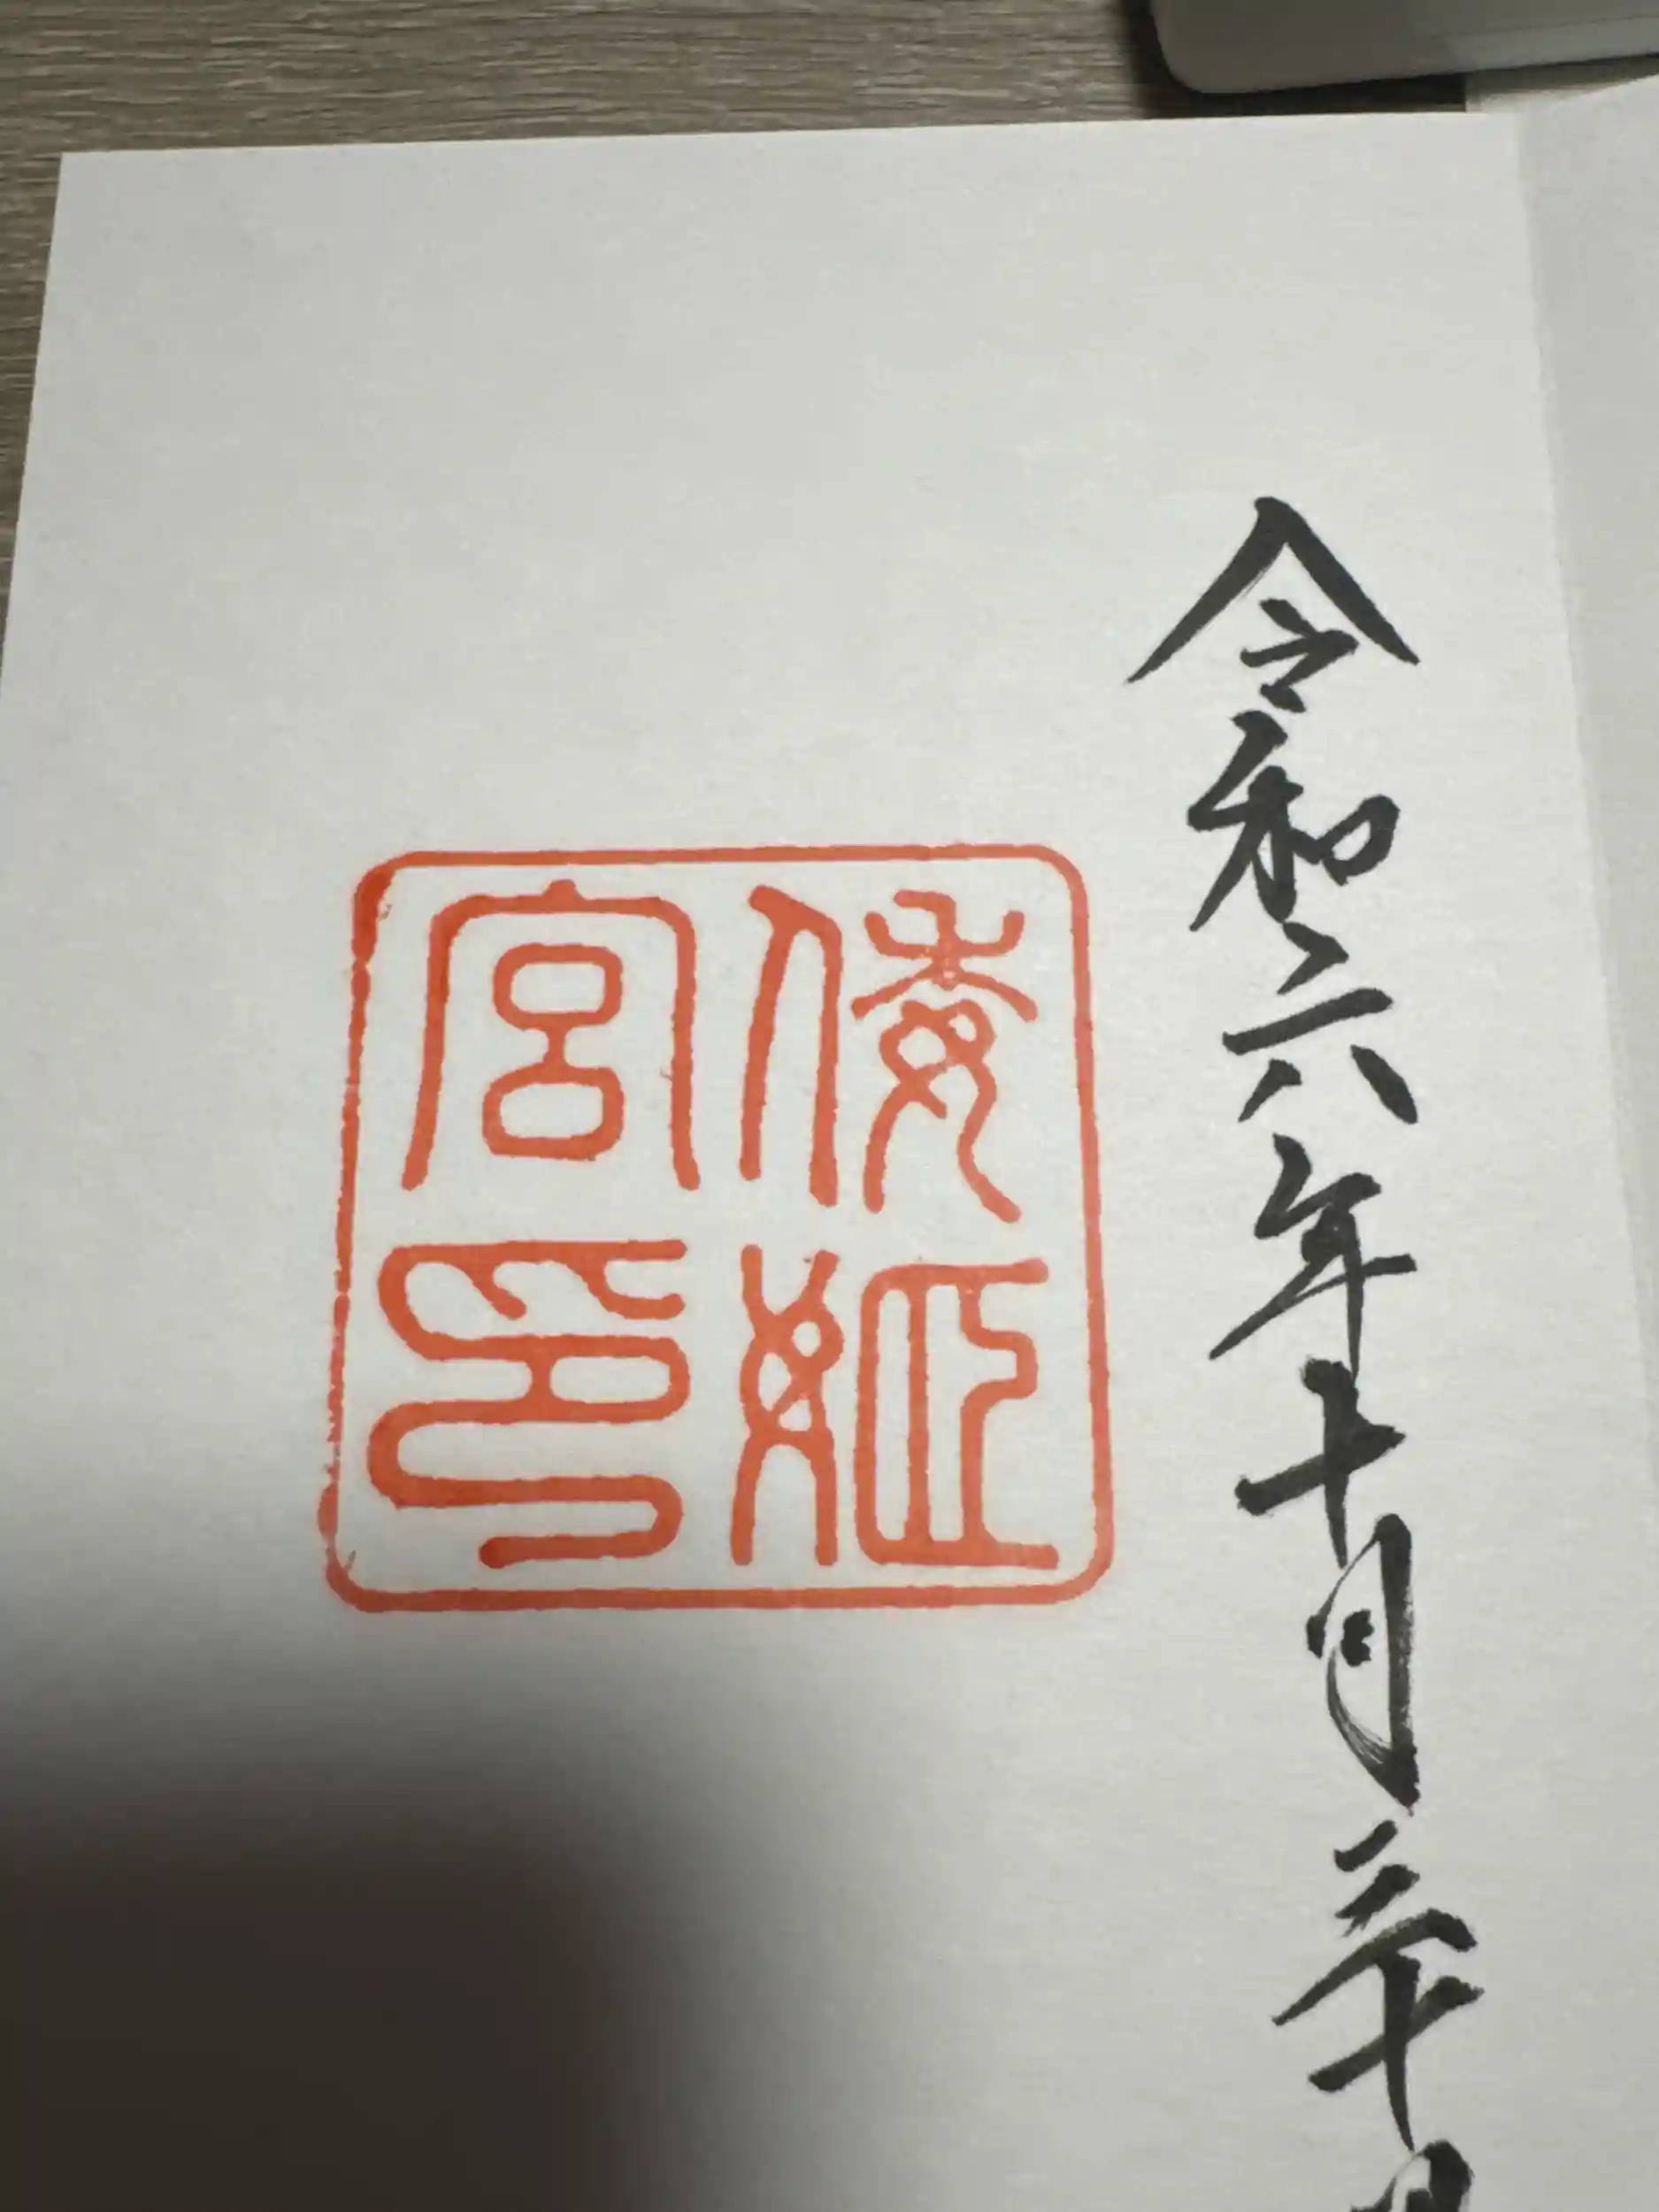 令和六年十月三十日
倭姫
宮印